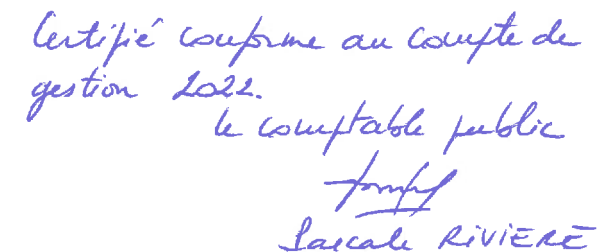 Certifié conforme au compte de
gestion 2022.
le comptable public
Pascale RIVIERE